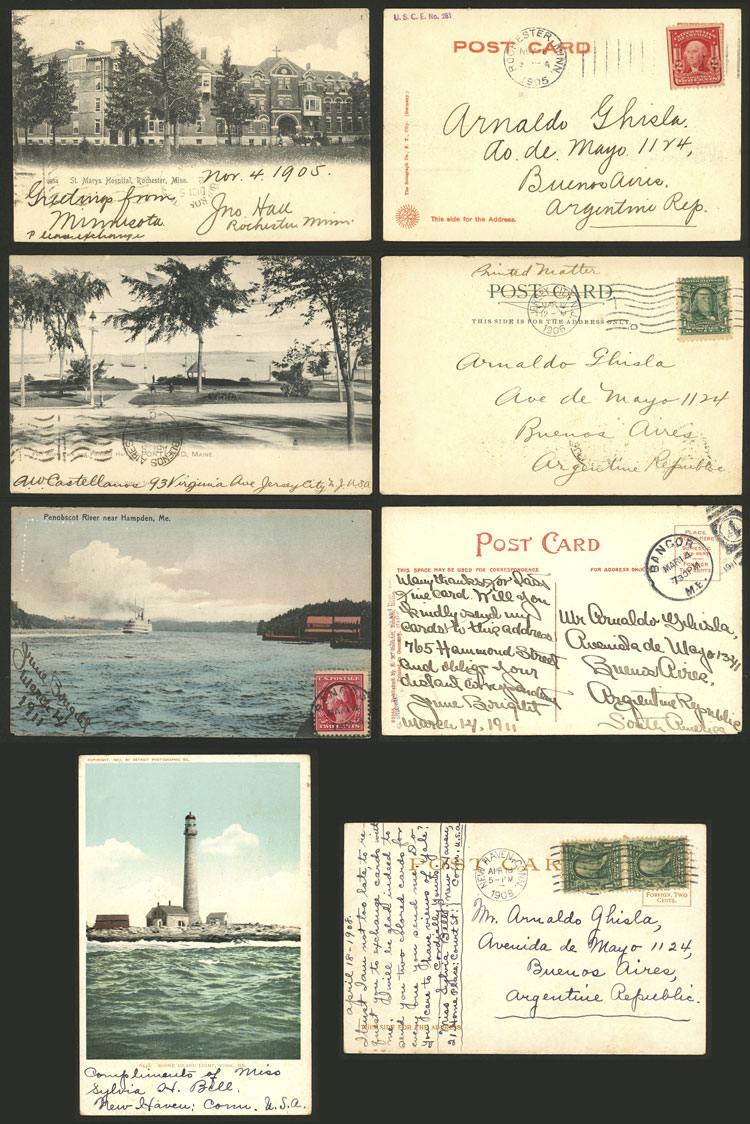 St. Marys Hospital, Rochester, Minn.
Nov. 4. 1905.
Greetings from
Minnesota
Please exchange
Jno. Hall
Rochester Minn.
U.S.C.E. No. 281
POST CARD
ROCHESTER, MINN.
1905
Arnaldo Ghisla.
Ao. de. Mayo. 1124,
Buenos Aires.
Argentine Rep.
This side for the Address.
BUENOS AIRES
PORTLAND, MAINE
AW Castellanos 93 Virginia Ave Jersey City N.J. USA
Printed Matter
POST CARD.
THIS SIDE IS FOR THE ADDRESS ONLY.
1906
Arnaldo Ghisla
Ave de Mayo 1124
Buenos Aires
Argentine Republic
Penobscot River near Hampden, Me.
March 14
1911
U.S. POSTAGE
TWO CENTS
POST CARD
THIS SPACE MAY BE USED FOR CORRESPONDENCE.
FOR ADDRESS ONLY
BANGOR
MAR 14
7 30 PM
ME.
4
1911
Many thanks for
fine card. Will you
kindly send my
cards to this address
765 Hammond Street
and oblige your
distant correspondent
March 14, 1911
Mr Arnaldo Ghisla,
Avenida de Mayo 1341
Buenos Aires,
Argentine Republic
South America
BOONE ISLAND LIGHT, YORK, ME.
Compliments of Miss
Sylvia H. Bell.
New Haven; Conn. U.S.A.
POST CARD
NEW HAVEN, CONN.
APR 18
5-PM
1908
FOREIGN, TWO
CENTS.
Mr. Arnaldo Ghisla,
Avenida de Mayo 1124,
Buenos Aires,
Argentine Republic.
THIS SIDE FOR THE ADDRESS
April 18-1908.
I trust I am not too late to re-
quest you to exchange cards with
me. I will be glad indeed to
send you two colored cards for
every one you send me. Do
you care to have views of Yale?
Cordially yours,
"Miss Sylvia Bell; New Haven,
21 Home Place; Court St; Conn. U.S.A